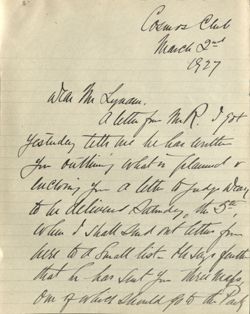 Cosmos Club
March 2nd
1927
Dear Mr Lynam.
A letter from Mr R. I got
yesterday tells me he has written
you outlining what is planned &
enclosing you a letter to Judge Deasy
to be delivered Saturday, the 5th,
when I shall send out letter from
here to a small list. He says further
that he has sent you three maps,
one of which should go to the Park